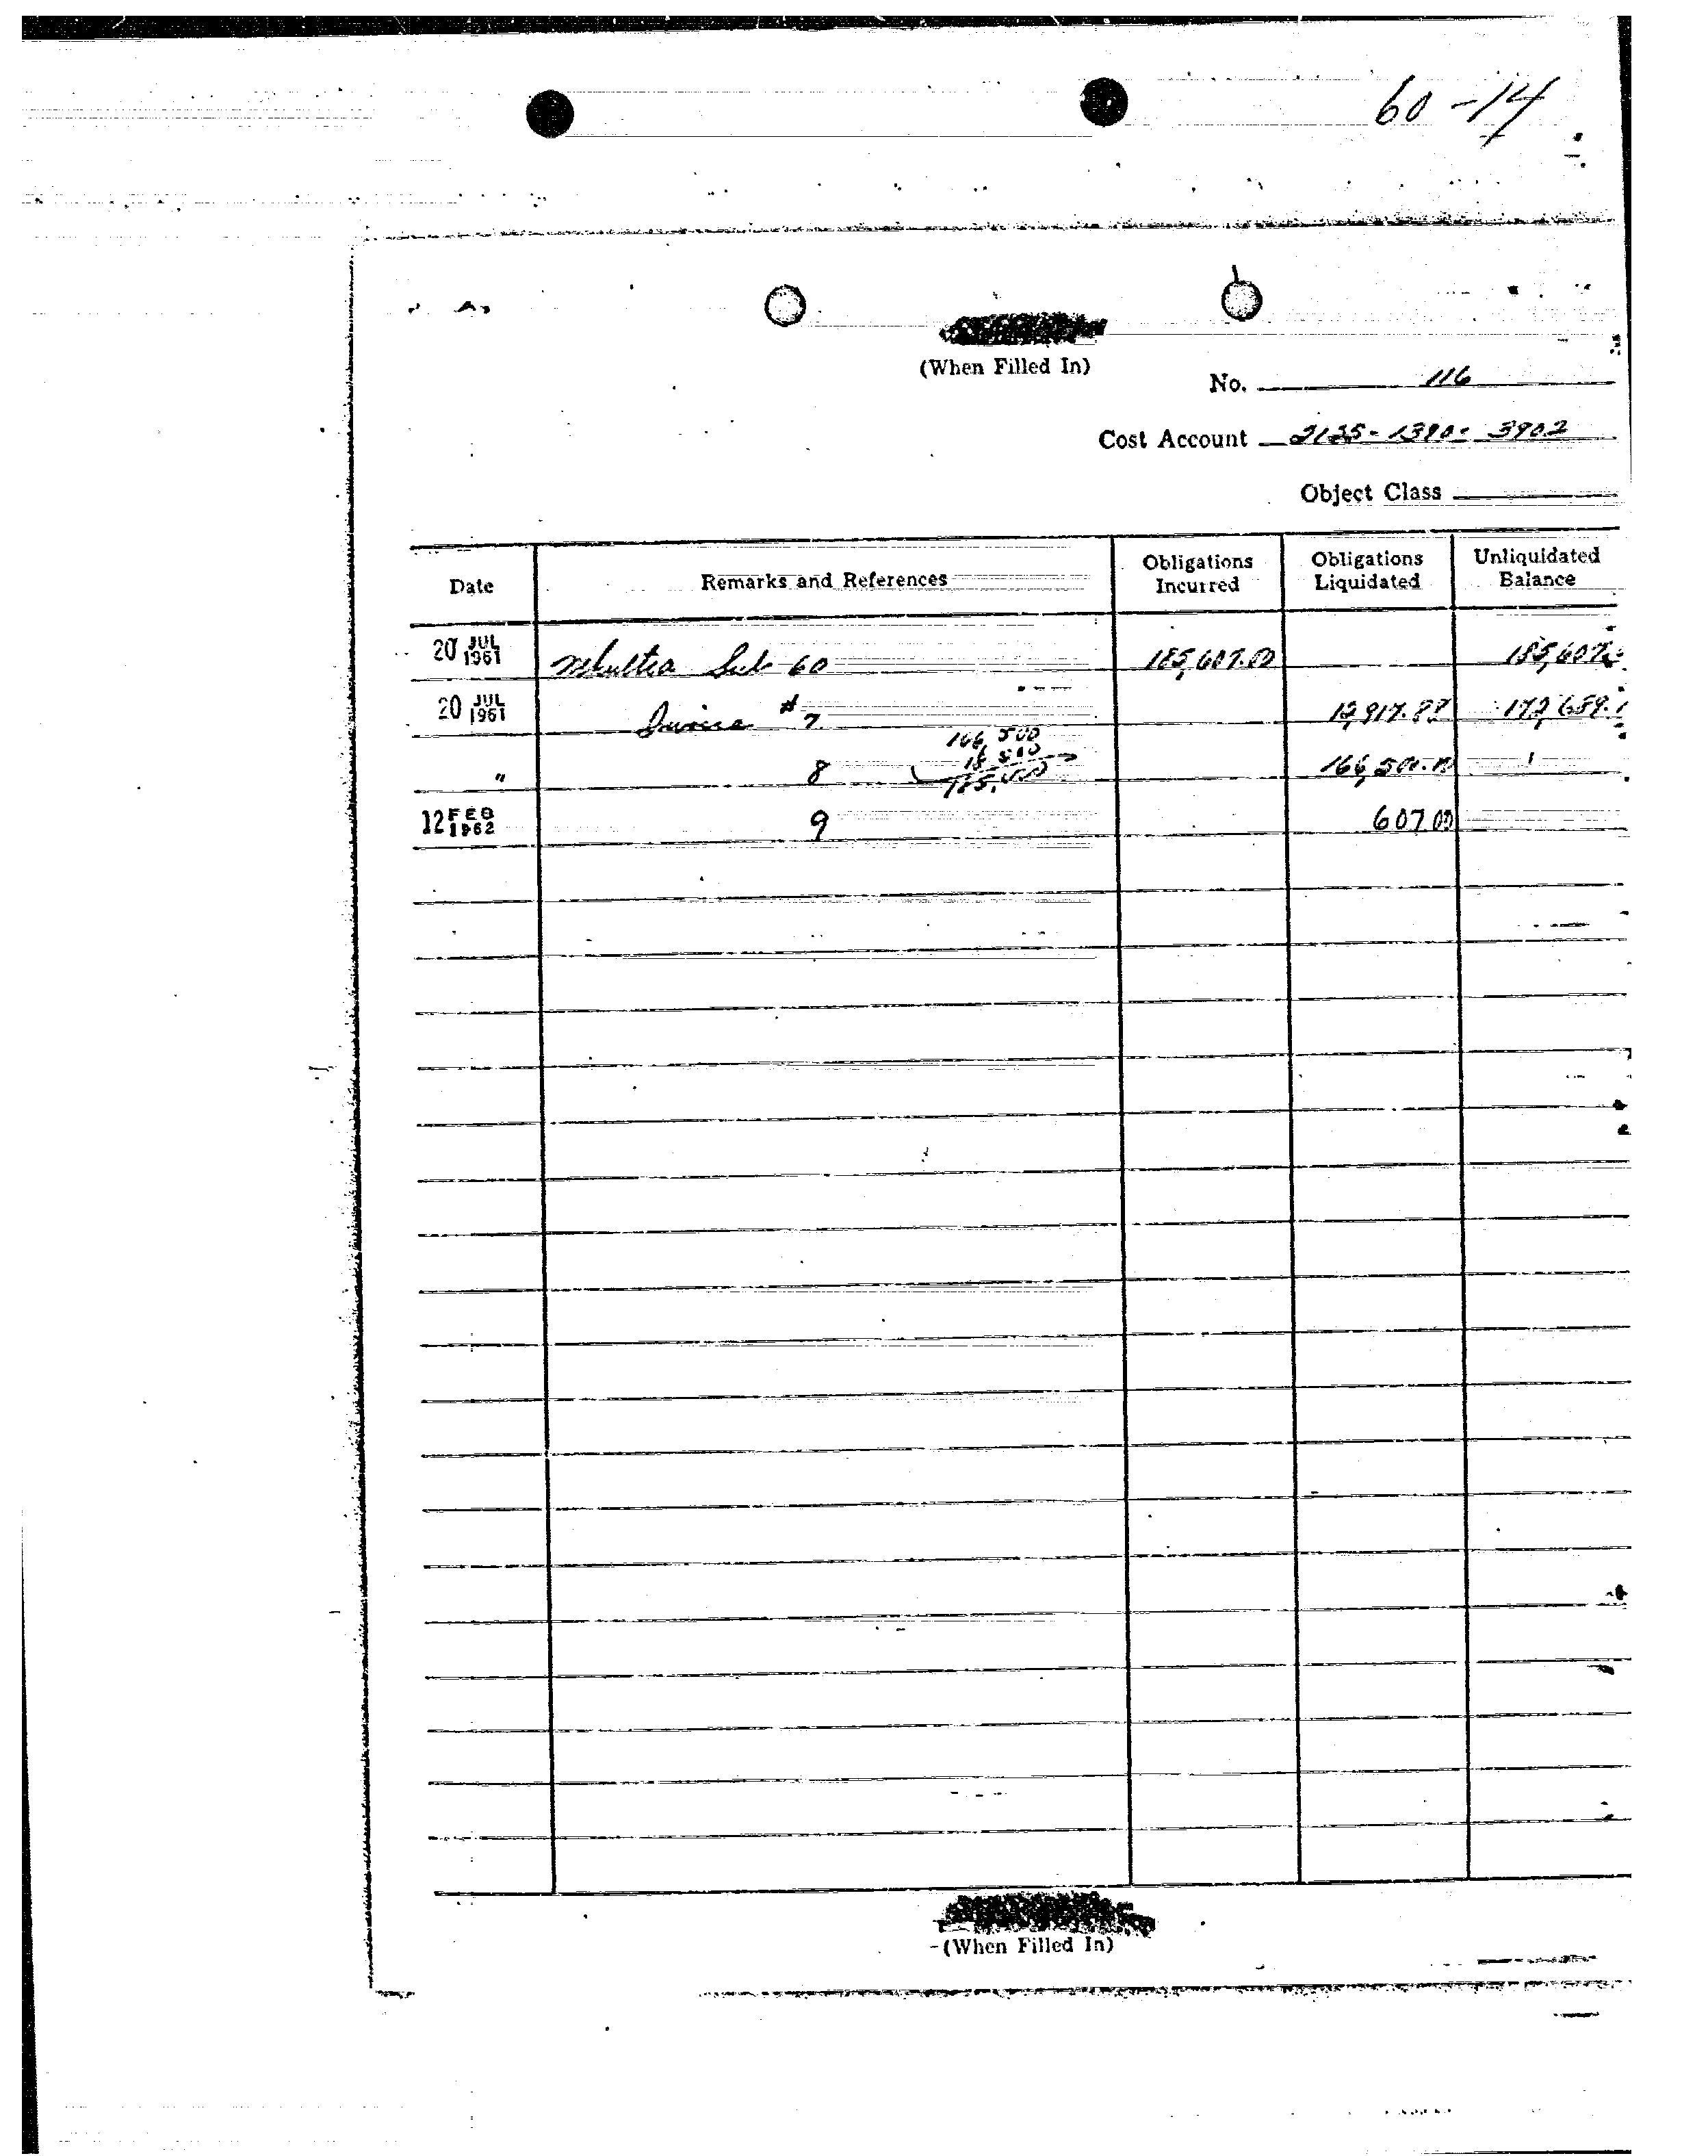 60-14
(When Filled In)
No. 116
Cost Account 2125-1390-3902
Object Class
Date Remarks and References Obligations Incurred Obligations Liquidated Unliquidated Balance
20 JUL 1961 Mkultra Sub 60 185,607.00 185,607
20 JUL 1961 Invoice #7
166,500
" 8 166,500.00
12 FEB 1962 9 607 00
(When Filled In)